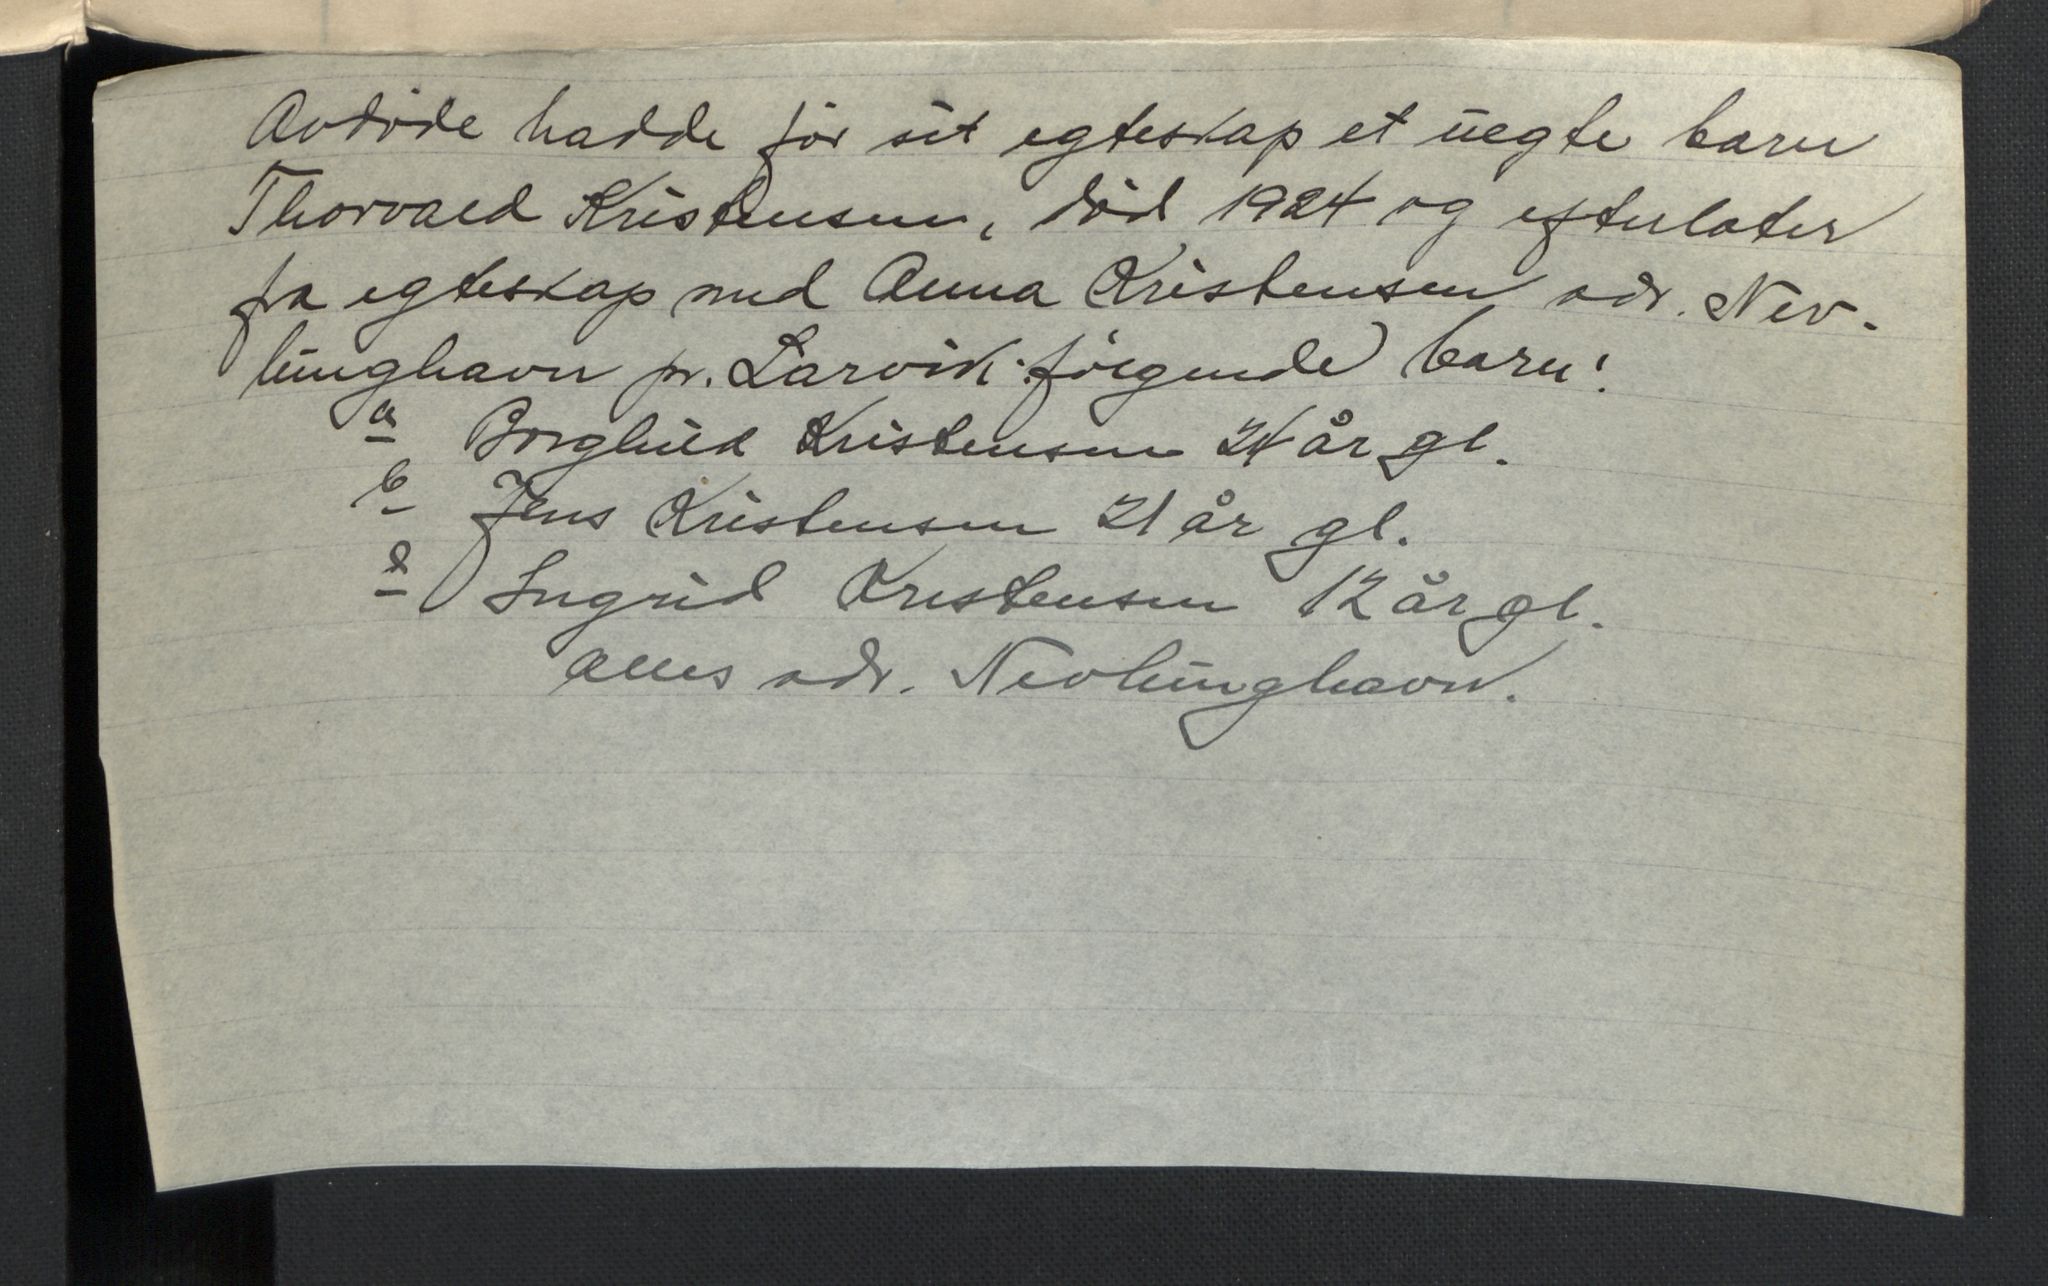 Avdöde hadde för sit egteskap et uegte barn
Thorvald Kristensen, död 1924 og efterlater
fra egteskap med Anna Kristensen adr. Nev-
lunghavn pr. Larvik følgende barn:
a Borghild Kristensen 24 år gl.
b Jens Kristensen 21 år gl.
Ingrid Kristensen 12 år gl.
Alles adr. Nevlunghavn.